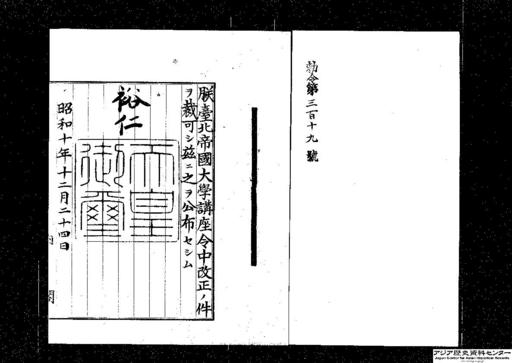 勅令第三百十九號
朕臺北帝國大學講座令中改正ノ件
ヲ裁可シ茲ニ之ヲ公布セシム
裕仁
天皇
御璽
昭和十年十二月二十四日
内閣
アジア歴史資料センター
Japan Center for Asian Historical Records